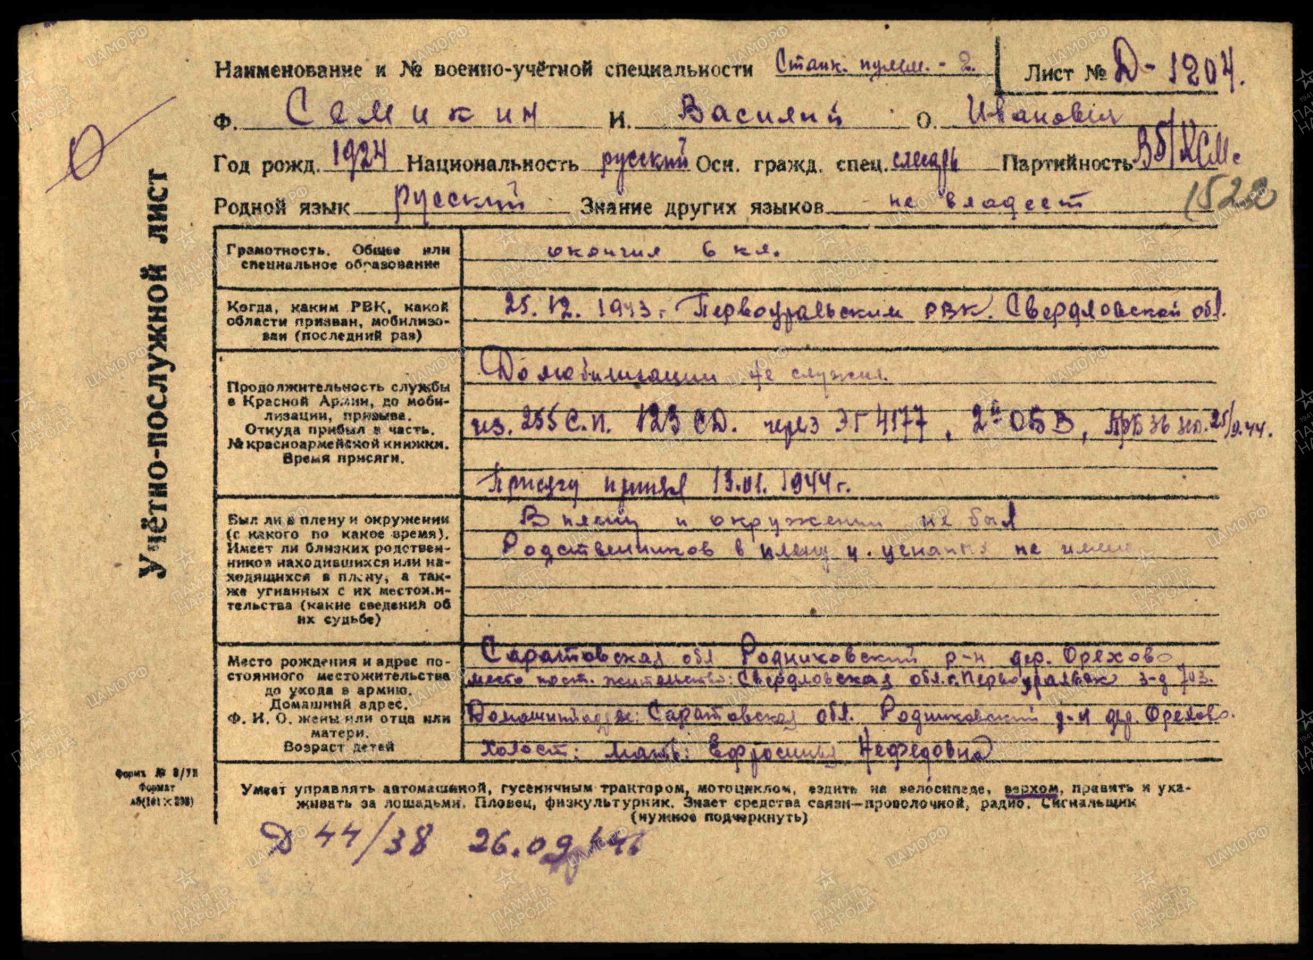 Наименование и № военно-учётной специальности Станк. пулем. - 2. Лист № Д-1204.
Ф. Семикин И. Василий О. Иванович
Год рожд. 1924 Национальность русский Осн. гражд. спец. слесарь Партийность ВЛКСМ
Родной язык русский Знание других языков не владеет 1522
Учётно-послужной лист
Грамотность. Общее или специальное образование
окончил 6 кл.
Когда, каким РВК, какой области призван, мобилизован (последний раз)
25.12.1943 г. Первоуральским РВК. Свердловской обл.
Продолжительность службы в Красной Армии, до мобилизации, призыва. Откуда прибыл в часть. № красноармейской книжки. Время присяги.
До мобилизации не служил
из. 255 С.П. 123 СД. через ЭГ 4177, 2й ОБВ,
Присягу принял 13.01.1944 г.
Был ли в плену и окружении (с какого по какое время). Имеет ли близких родственников находившихся или находящихся в плену, а также угнанных с их местожительства (какие сведения об их судьбе)
В плену и окружении не был
Родственников в плену и угнанных не имею
Место рождения и адрес постоянного местожительства до ухода в армию. Домашний адрес. Ф. И. О. жены или отца или матери. Возраст детей
Саратовская обл Родниковский р-н дер. Орехово
место пост. жительство: Свердловская обл. г. Первоуральск з-д 703.
Домашний адрес: Саратовская обл. Родниковский р-н дер. Орехово.
Холост: мать: Ефросинья Нефедовна
Форма № 8/УП
Формат
Умеет управлять автомашиной, гусеничным трактором, мотоциклом, ездить на велосипеде, верхом, править и ухаживать за лошадьми. Пловец, физкультурник. Знает средства связи—проволочной, радио. Сигнальщик
(нужное подчеркнуть)
Д 44/38 26.09
ЦАМО.РФ
ПАМЯТЬ НАРОДА